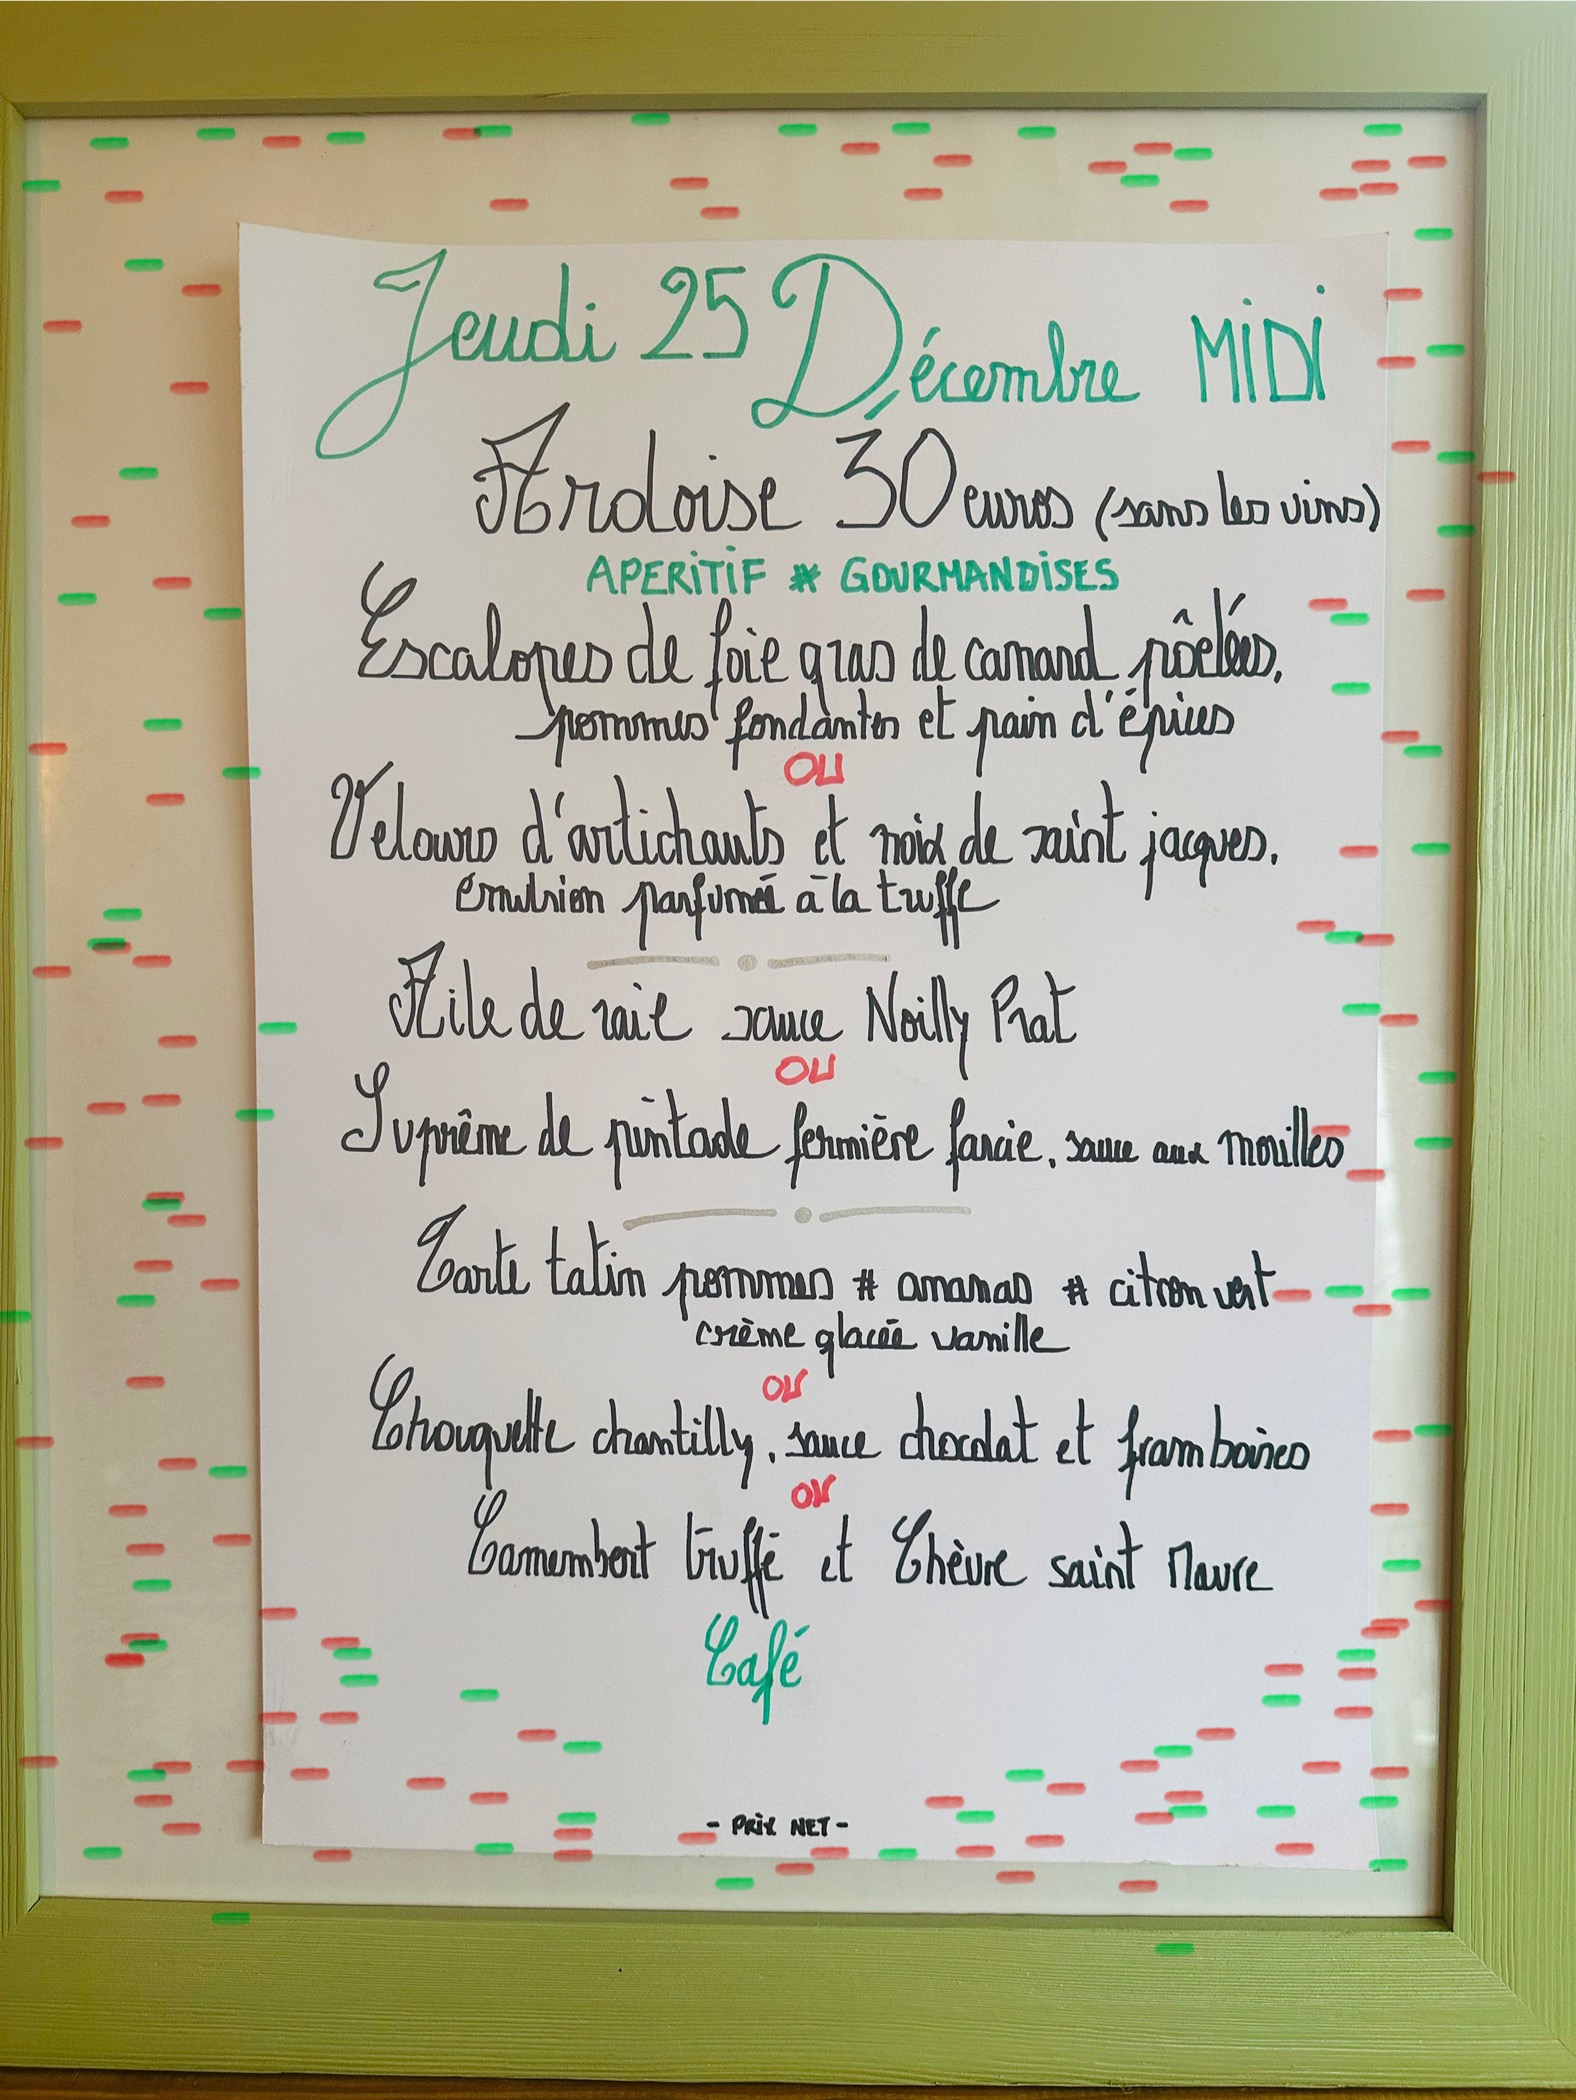 Jeudi 25 Décembre MiDi
Ardoise 30 euros (sans les vins)
APERiTiF # GOURMANDiSES
Escalopes de foie gras de canard pôelées,
pommes fondantes et pain d'épices
OU
Velours d'artichauts et noix de saint jacques,
émulsion parfumée à la truffe
Aile de raie sauce Noilly Prat
OU
Suprême de pintade fermière farcie, sauce aux morilles
Tarte tatin pommes # ananas # citron vert
crème glacée vanille
OU
Chouquette chantilly, sauce chocolat et framboises
OU
Camembert truffé et Chèvre saint Maure
Café
- PRiX NET -